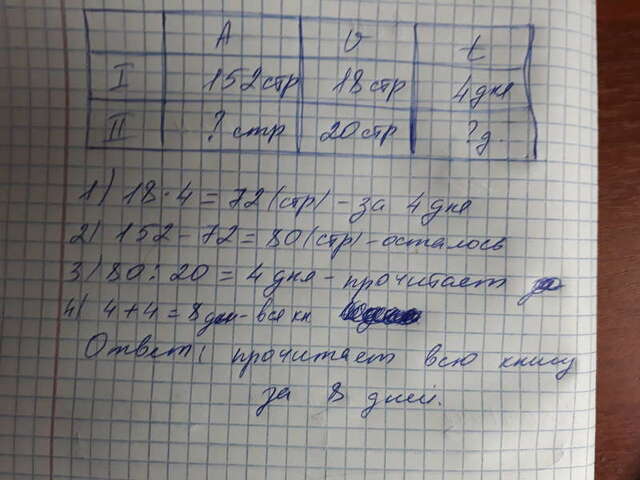 А v t
I 152 стр 18 стр 4 дня
II ? стр 20 стр ? д.
1) 18 · 4 = 72 (стр) - за 4 дня
2) 152 - 72 = 80 (стр) - осталось
3) 80 : 20 = 4 дня - прочитает
4) 4 + 4 = 8 дн - вся кн
Ответ: прочитает всю книгу
за 8 дней.